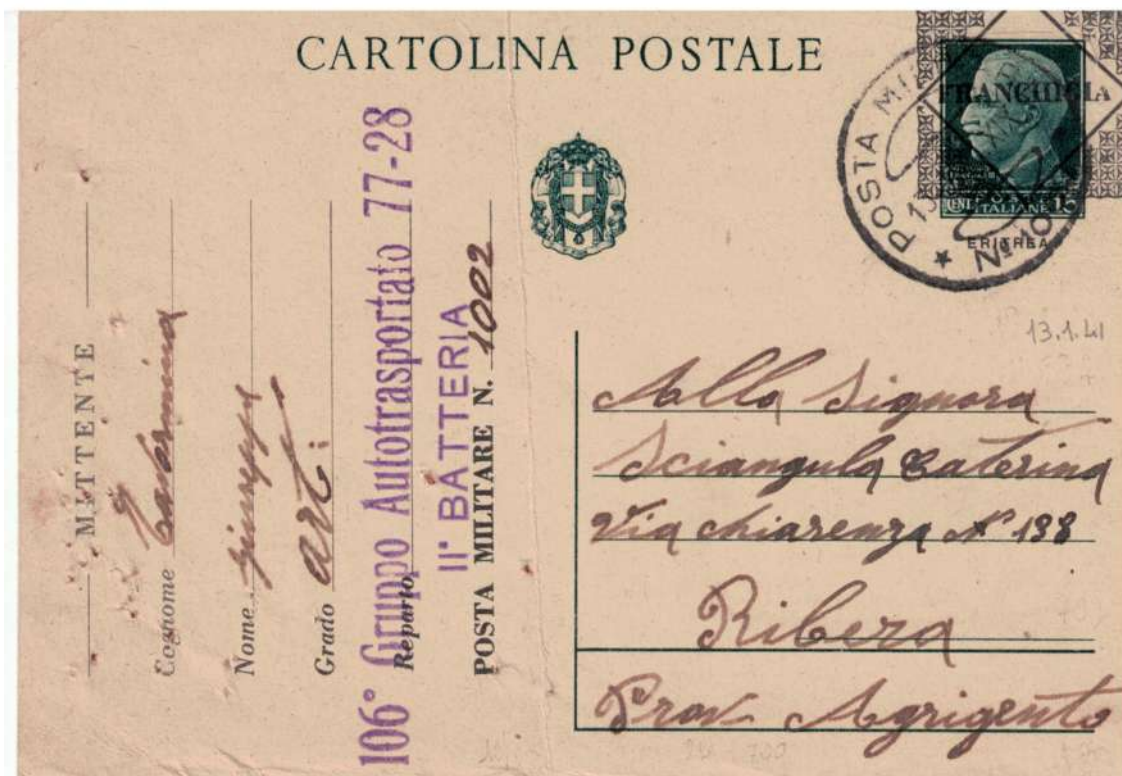 CARTOLINA POSTALE
FRANCHIGIA
POSTA MI
13
Nº 10
CENT. 15
ITALIANE
ERITREA
13.1.41
MITTENTE
Cognome
Nome Giuseppe
Grado Art:
Reparto
106° Gruppo Autotrasportato 77-28
II° BATTERIA
POSTA MILITARE N. 1002
Alla Signora
Sciangula Caterina
Via Chiarenza N° 138
Ribera
Prov Agrigento